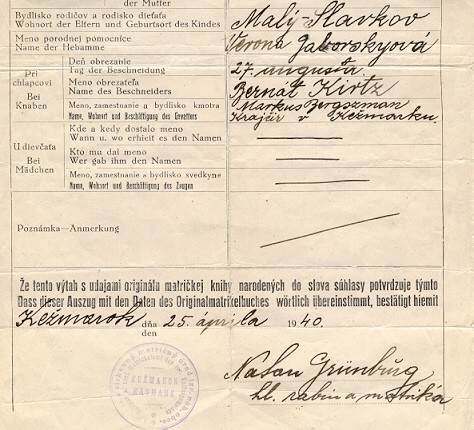 der Mutter
Bydlisko rodičov a rodisko dieťaťa
Wohnort der Eltern und Geburtsort des Kindes
Malý-Slavkov
Meno porodnej pomocnice
Name der Hebamme
Verona Gaborskyová
Pri chlapcovi
Bei Knaben
Deň obrezanie
Tag der Beschneidung
27 augusta
Meno obrezateľa
Name des Beschneiders
Bernát Kirtz
Meno, zamestnanie a bydlisko kmotra
Name, Wohnort und Beschäftigung des Gevatters
Markus Bergszman
Krajčír v Kežmarku.
U dievčata
Bei Mädchen
Kde a kedy dostalo meno
Wann u. wo erhielt es den Namen
Kto mu dal meno
Wer gab ihm den Namen
Meno, zamestnanie a bydlisko svedkyne
Name, Wohnort und Beschäftigung des Zeugen
Poznámka—Anmerkung
Že tento výtah s udajami originálu matričkej knihy narodených do slova súhlasy potvrdzuje týmto
Dass dieser Auszug mit den Daten des Originalmatrikelbuches wörtlich übereinstimmt, bestätigt hiemit
Kežmarok dňa 25. apríla 1940.
den
KEŽMAROK
KÄSMARK
Natan Grünburg
hl. rabín a matrikár